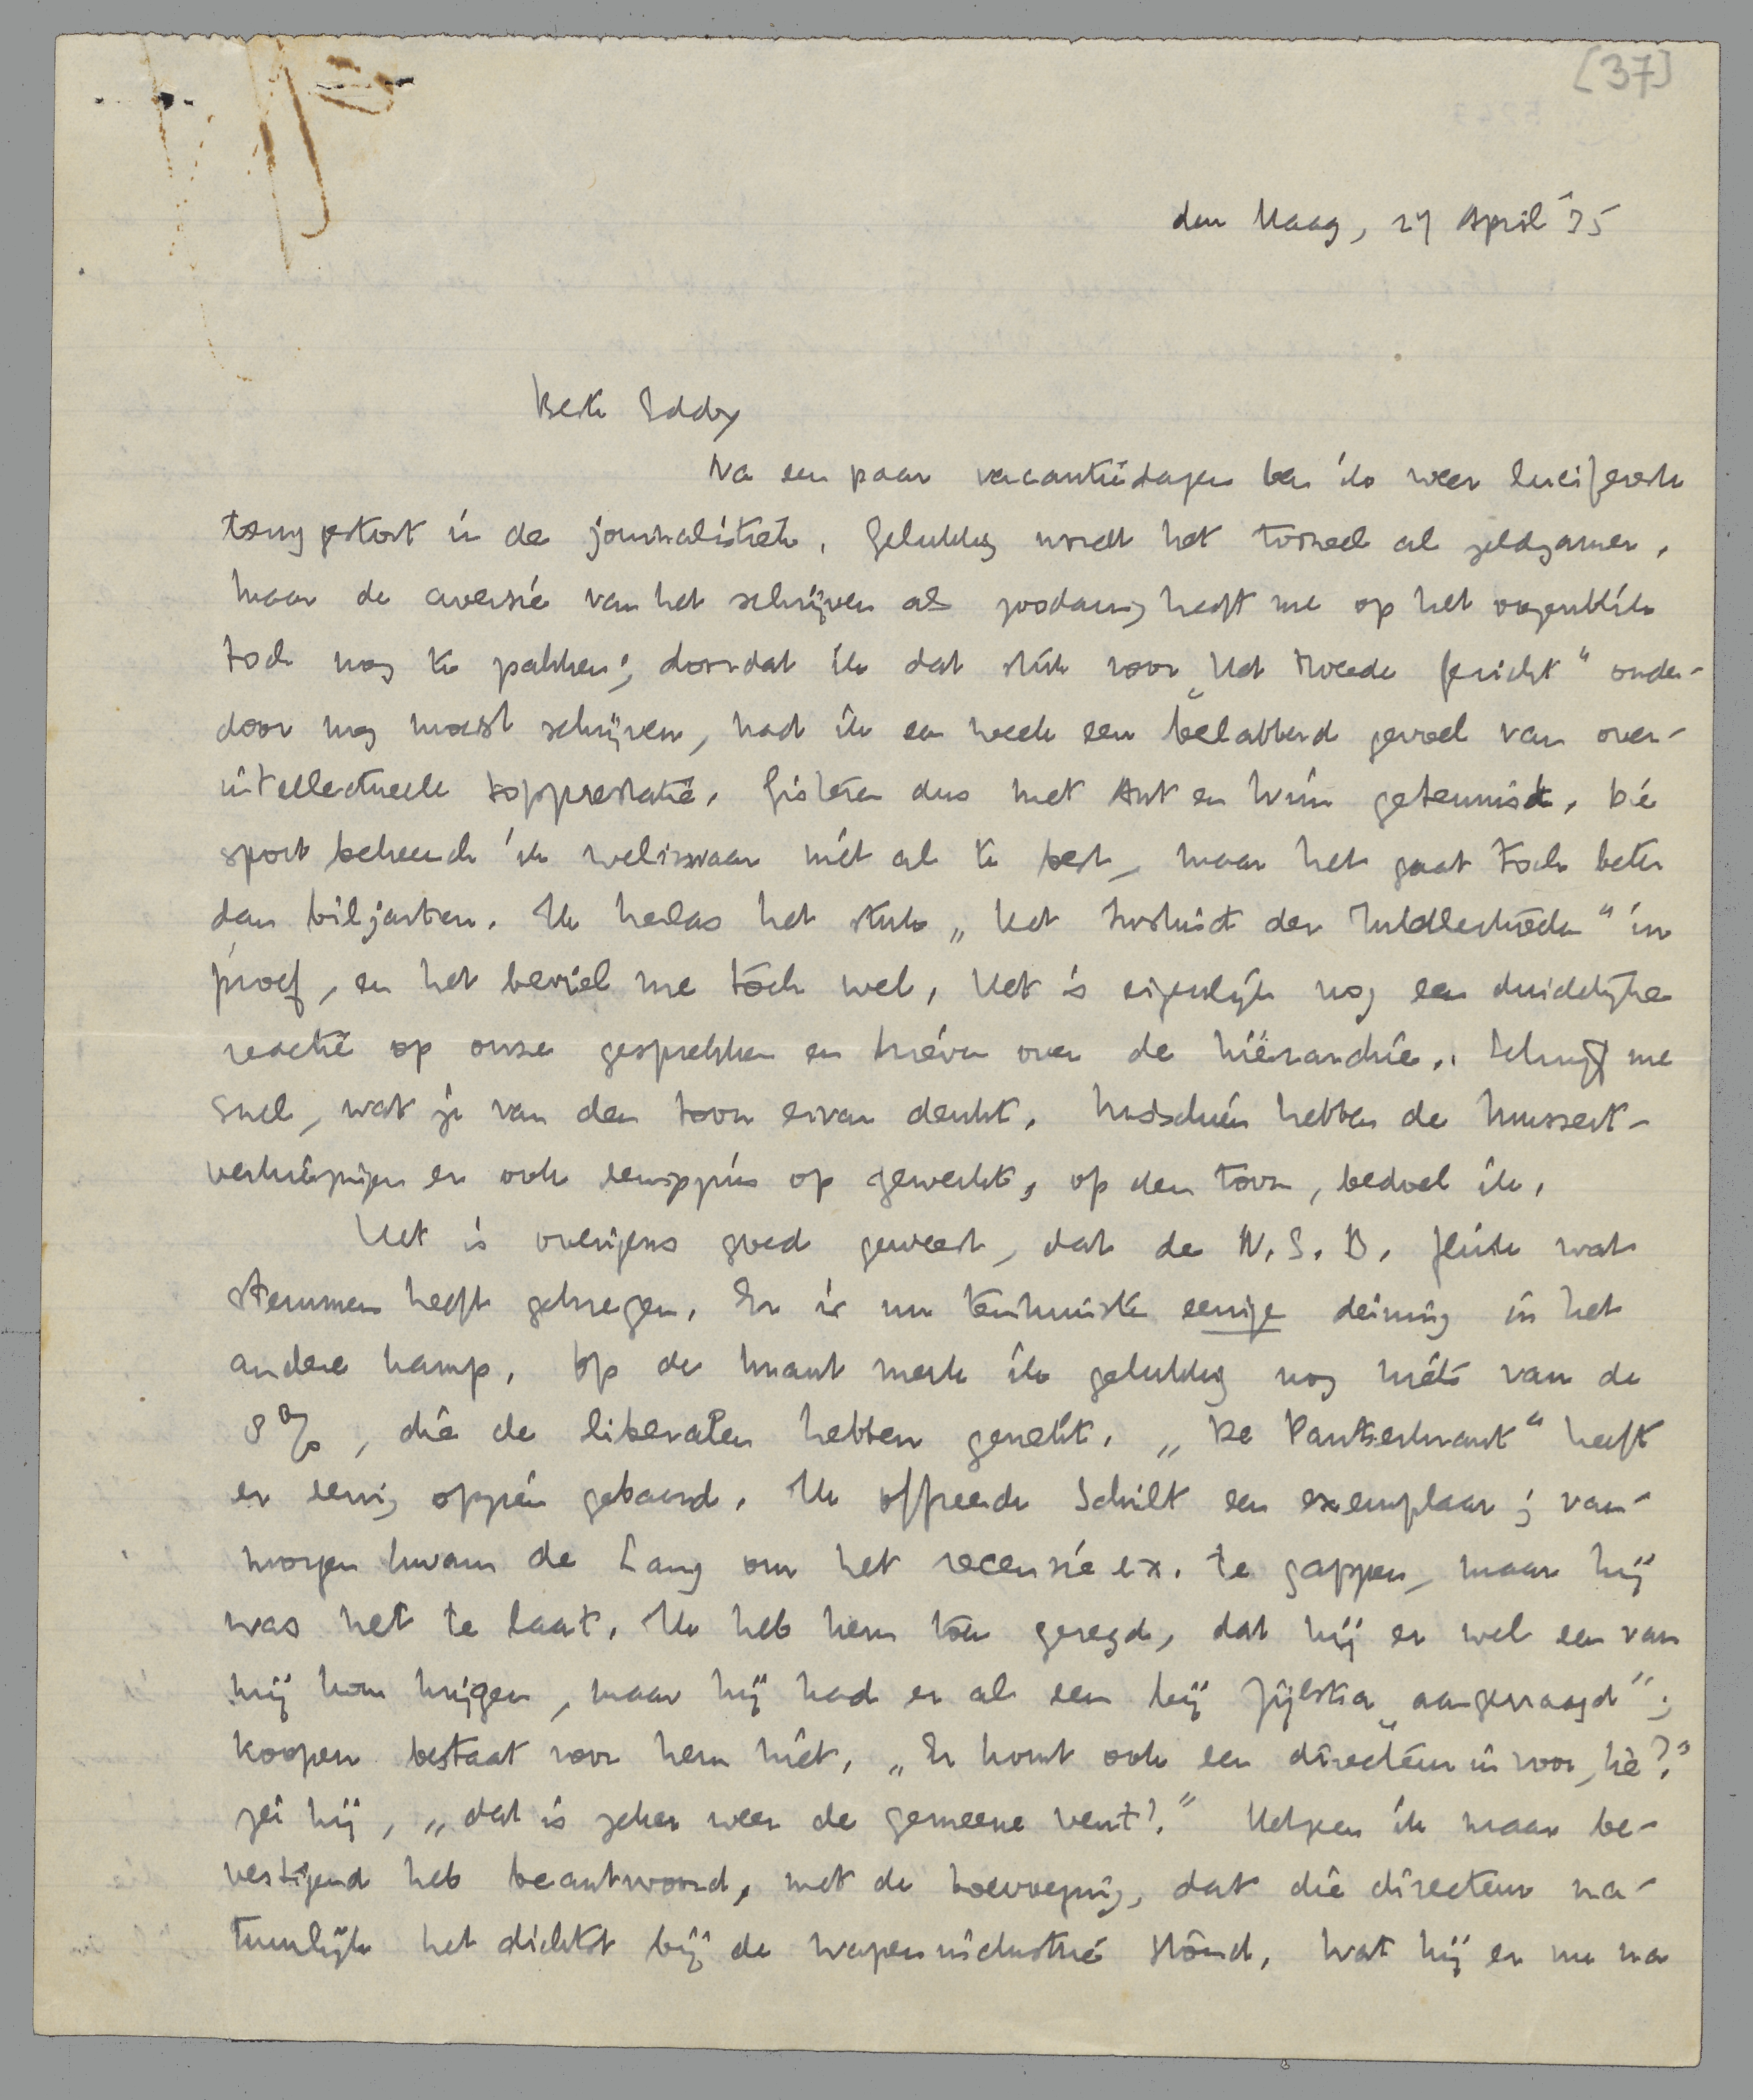 [37]
den Haag, 27 April '35
Beste Eddy
Na een paar vacantiedagen ben ik weer luciferesk
teruggestort in de journalistiek. Gelukkig wordt het tooneel al zeldzamer,
maar de aversie van het schrijven als zoodanig heeft me op het oogenblik
toch nog te pakken; doordat ik dat stuk voor „Het Tweede Gezicht" onder-
door nog moest schrijven, had ik een week een belabberd gevoel van over-
intellectueele topprestatie. Gisteren dus met Ant en Wim getennist. Die
sport beheersch ik weliswaar niet al te best, maar het gaat toch beter
dan biljarten. Ik herlas het stuk „Het Instinct der Middelmaat" in
proef, en het beviel me tòch wel. Het is eigenlijk nog een duidelijke
reactie op onze gesprekken en brieven over de hiërarchie. Schrijf me
snel, wat je van den toon ervan denkt. Misschien hebben de Mussert-
verkiezingen er ook eenigszins op gewerkt, op den toon, bedoel ik.
Het is overigens goed geweest, dat de N.S.B. flink wat
stemmen heeft gekregen. Er is nu tenminste eenige deining in het
andere kamp. Op de krant merk ik gelukkig nog niets van de
8%, die de liberalen hebben gemaakt. „De Pantserkrant" heeft
er eenig opzien gebaard. Ik offreerde Schilt een exemplaar; van-
morgen kwam de Lang om het recensie ex. te gappen, maar hij
was net te laat. Ik heb hem toen gezegd, dat hij er wel een van
mij kon krijgen, maar hij had er al een bij Zijlstra „aangevraagd";
koopen bestaat voor hem niet. „Er komt ook een directeur in voor, hè?"
zei hij, „dat is zeker weer de gemeene vent?" Hetgeen ik maar be-
vestigend heb beantwoord, met de toevoeging, dat die directeur na-
tuurlijk het dichtst bij de wapenindustrie stond. Wat hij er nu na